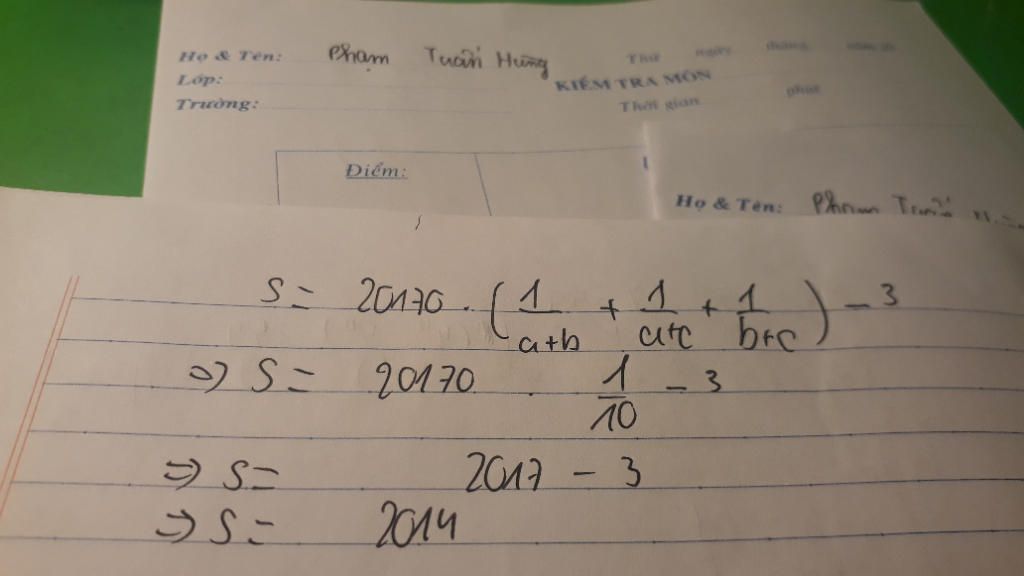 Họ & Tên: Phạm Tuấn Hưng
Lớp:
Trường:
Thứ ngày tháng năm
KIỂM TRA MÔN
Thời gian phút
Điểm:
Họ & Tên: Phạm Tuấn
S = 20170 . ( 1/(a+b) + 1/(a+c) + 1/(b+c) ) - 3
=> S = 20170 1/10 - 3
=> S = 2017 - 3
=> S = 2014